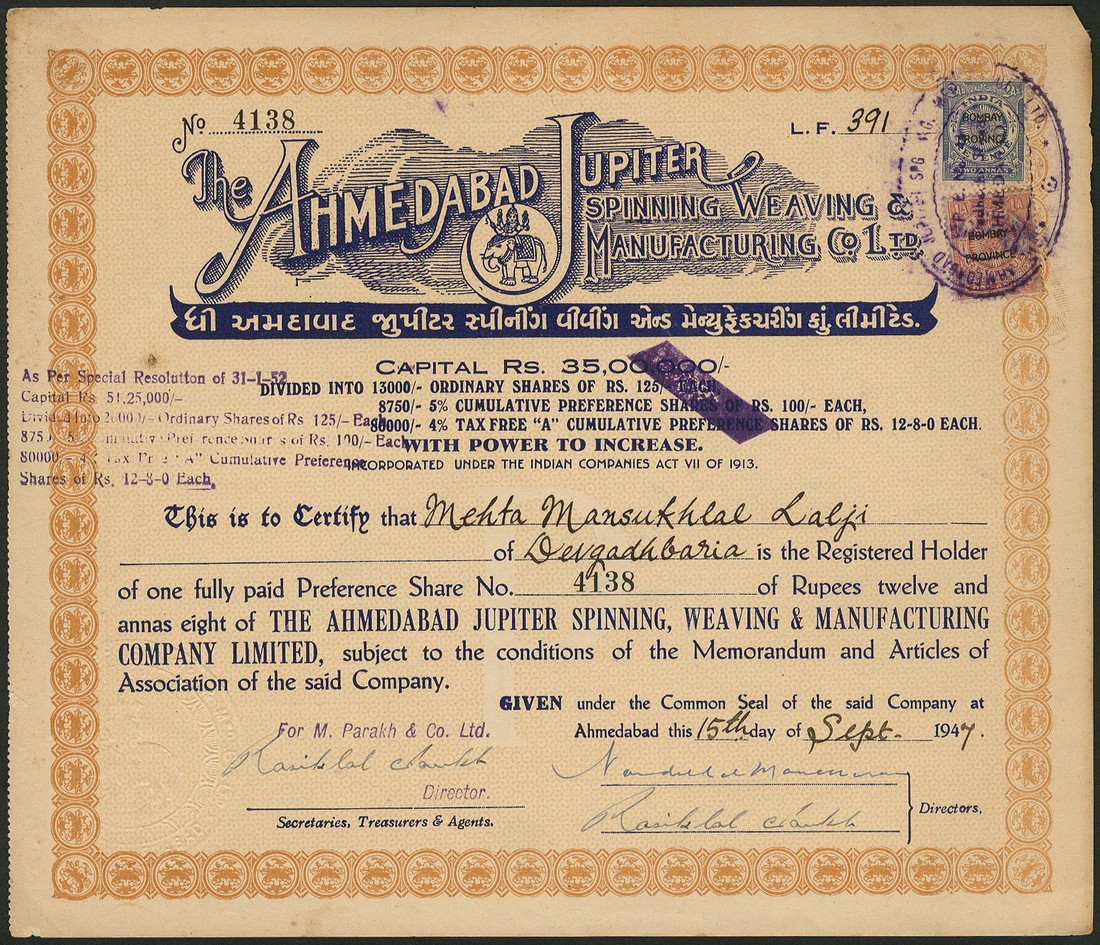 No 4138
L. F. 391
The AHMEDABAD JUPITER
SPINNING WEAVING &
MANUFACTURING CO. LTD.
INDIA
BOMBAY
PROVINCE
REVENUE
TWO ANNAS
BOMBAY
PROVINCE
ધી અમદાવાદ જીુપીટર સ્પીનીંગ વીવીંગ એન્ડ મેન્યુફેકચરીંગ કું. લીમીટેડ.
CAPITAL RS. 35,00,000/-
DIVIDED INTO 13000/- ORDINARY SHARES OF RS. 125/- EACH,
8750/- 5% CUMULATIVE PREFERENCE SHARES OF RS. 100/- EACH,
80000/- 4% TAX FREE "A" CUMULATIVE PREFERENCE SHARES OF RS. 12-8-0 EACH.
WITH POWER TO INCREASE.
INCORPORATED UNDER THE INDIAN COMPANIES ACT VII OF 1913.
As Per Special Resolution of 31-1-52
Capital Rs 51,25,000/-
Divided Into /- Ordinary Shares of Rs 125/- Each
875 5 Cumulative Preference Shares of Rs. 100/- Each
80000 4% Tax Free "A" Cumulative Preference
Shares of Rs. 12-8-0 Each.
This is to Certify that Mehta Mansukhlal Lalji
of Devgadhbaria is the Registered Holder
of one fully paid Preference Share No. 4138 of Rupees twelve and
annas eight of THE AHMEDABAD JUPITER SPINNING, WEAVING & MANUFACTURING
COMPANY LIMITED, subject to the conditions of the Memorandum and Articles of
Association of the said Company.
GIVEN under the Common Seal of the said Company at
Ahmedabad this 15th day of Sept. 1947.
For M. Parakh & Co. Ltd.
Director.
Secretaries, Treasurers & Agents.
Directors.